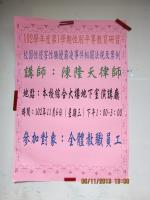 (102學年度第1學期性別平等教育研習)
校園性侵害性騷擾霸凌事件相關法規及案例
講師：陳隆天律師
地點：本校綜合大樓地下室演講廳
時間：102年11月6日(星期三)下午1:00-3:00
參加對象：全體教職員工
06/11/2013 09:00